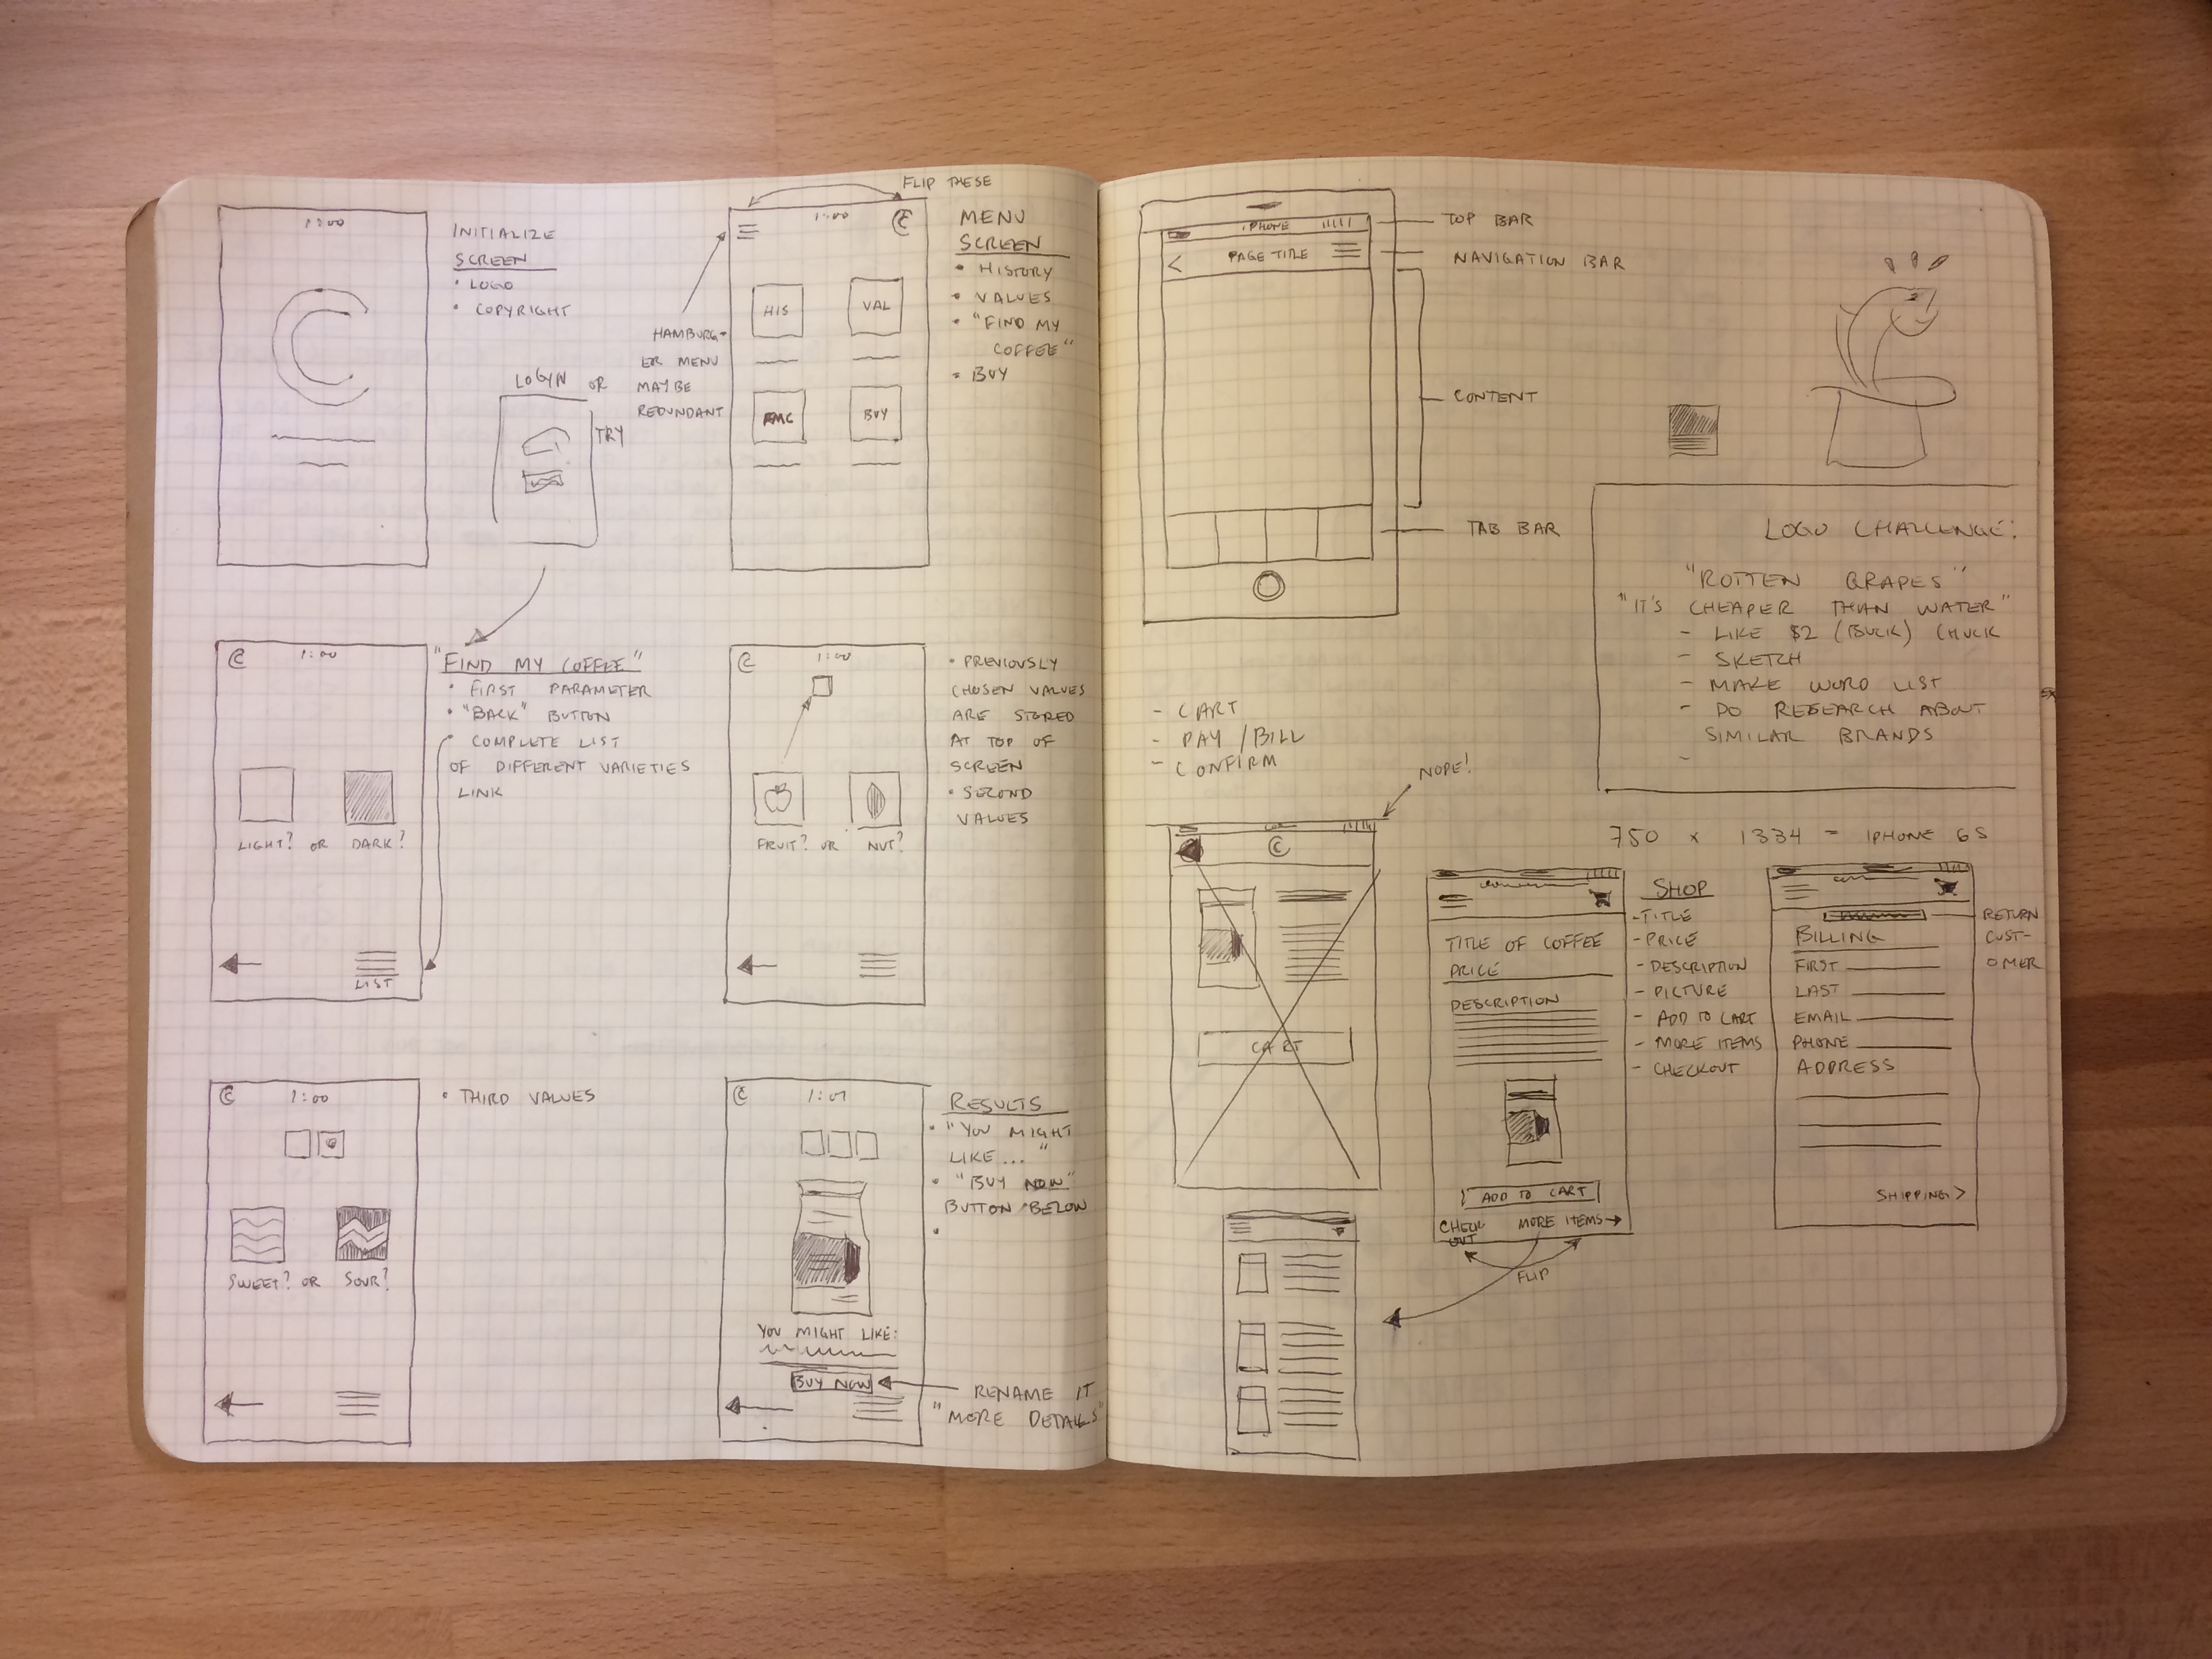 FLIP THESE
1:00
INITIALIZE
SCREEN
• LOGO
• COPYRIGHT
C
LOGIN OR
TRY
HAMBURG-
ER MENU
MAYBE
REDUNDANT
1:00
C
HIS
VAL
FMC
BUY
MENU
SCREEN
• HISTORY
• VALUES
• "FIND MY
COFFEE"
• BUY
C
1:00
LIGHT? OR DARK?
LIST
"FIND MY COFFEE"
• FIRST PARAMETER
• "BACK" BUTTON
• COMPLETE LIST
OF DIFFERENT VARIETIES
LINK
C
1:00
FRUIT? OR NUT?
• PREVIOUSLY
CHOSEN VALUES
ARE STORED
AT TOP OF
SCREEN
• SECOND
VALUES
C
1:00
SWEET? OR SOUR?
• THIRD VALUES
C
YOU MIGHT LIKE:
BUY NOW
RESULTS
• "YOU MIGHT
LIKE... "
• "BUY NOW"
BUTTON BELOW
RENAME IT
"MORE DETAILS"
IPHONE
< PAGE TITLE
TOP BAR
NAVIGATION BAR
CONTENT
TAB BAR
LOGO CHALLENGE:
"ROTTEN GRAPES"
"IT'S CHEAPER THAN WATER"
- LIKE $2 (BUCK) CHUCK
- SKETCH
- MAKE WORD LIST
- DO RESEARCH ABOUT
SIMILAR BRANDS
-
- CART
- PAY / BILL
- CONFIRM
NOPE!
C
CART
750 x 1334 = IPHONE 6S
TITLE OF COFFEE
PRICE
DESCRIPTION
ADD TO CART
CHECK
OUT
MORE ITEMS →
FLIP
SHOP
- TITLE
- PRICE
- DESCRIPTION
- PICTURE
- ADD TO CART
- MORE ITEMS
- CHECKOUT
BILLING
FIRST
LAST
EMAIL
PHONE
ADDRESS
SHIPPING >
RETURN
CUST-
OMER